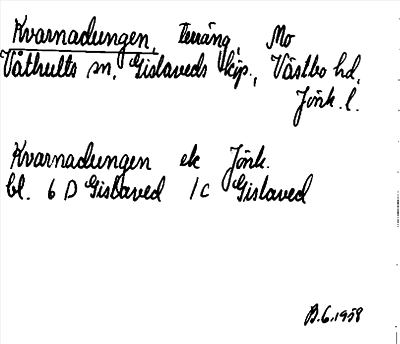 Kvarnadungen, terräng, Mo
Våthults sn, Gislaveds köp., Västbo hd,
Jönk. l.
Kvarnadungen ek Jönk.
bl. 6 D Gislaved 1c Gislaved
B.G. 1958